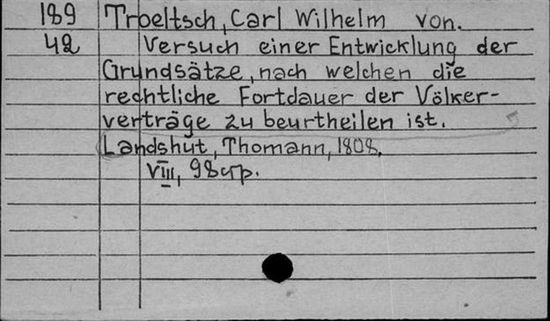 189 Troeltsch, Carl Wilhelm von.
42 Versuch einer Entwicklung der
Grundsätze, nach welchen die
rechtliche Fortdauer der Völker-
verträge zu beurtheilen ist.
Landshut, Thomann, 1808.
VIII, 98 стр.